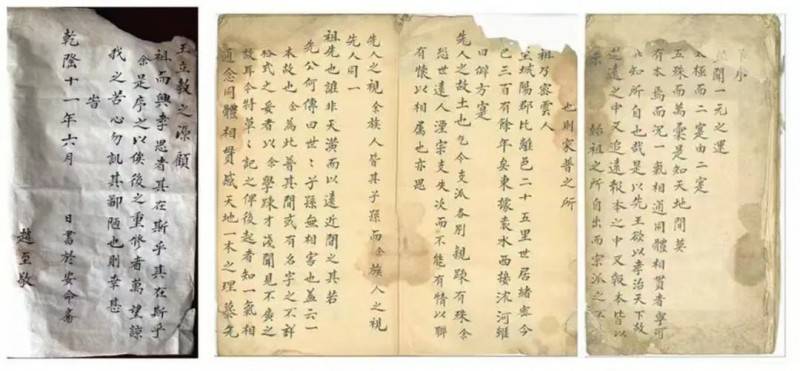 聞一元之運
太極而二寔由二寔
五殊而萬彙是知天地間莫
有本焉而況一氣相通同體相貫者寧可
不知所自也哉是以先王欲以孝治天下故
追遠之中又追遠報本之中又報本皆以
始祖之所自出而宗派之不
也則家普之所
祖乃密雲人
至城陽郡北離邑二十五里世居緒密今
已三百有餘年矣東據袁水西接浓河維
曰 方寔
先人之故土也乞今支派各別親踈有殊余
恐世遠人湮宗支失次而不能有情以聯
有懷以相属也亦思
先人之視余族人皆其子孫而余族人之視
先人同一
祖先也誰非天潢而以遠近閒之其若
先公何傳曰世〻子孫無相害也盖云一
本故也余為此普其間或有名字之不詳
式之妥者以余學踈才淺聞見不廣之
故耳今特草〻記之俾後起者知一氣相
通念同體相貫感天地一本之理慕先
王立教之深願
祖而興孝思者其在斯乎其在斯乎
余是序之以俟後之重修者萬望諒
我之苦心勿訊其鄙陋也則幸甚
旹
乾隆十一年六月 日書於安命齋
趙至敬